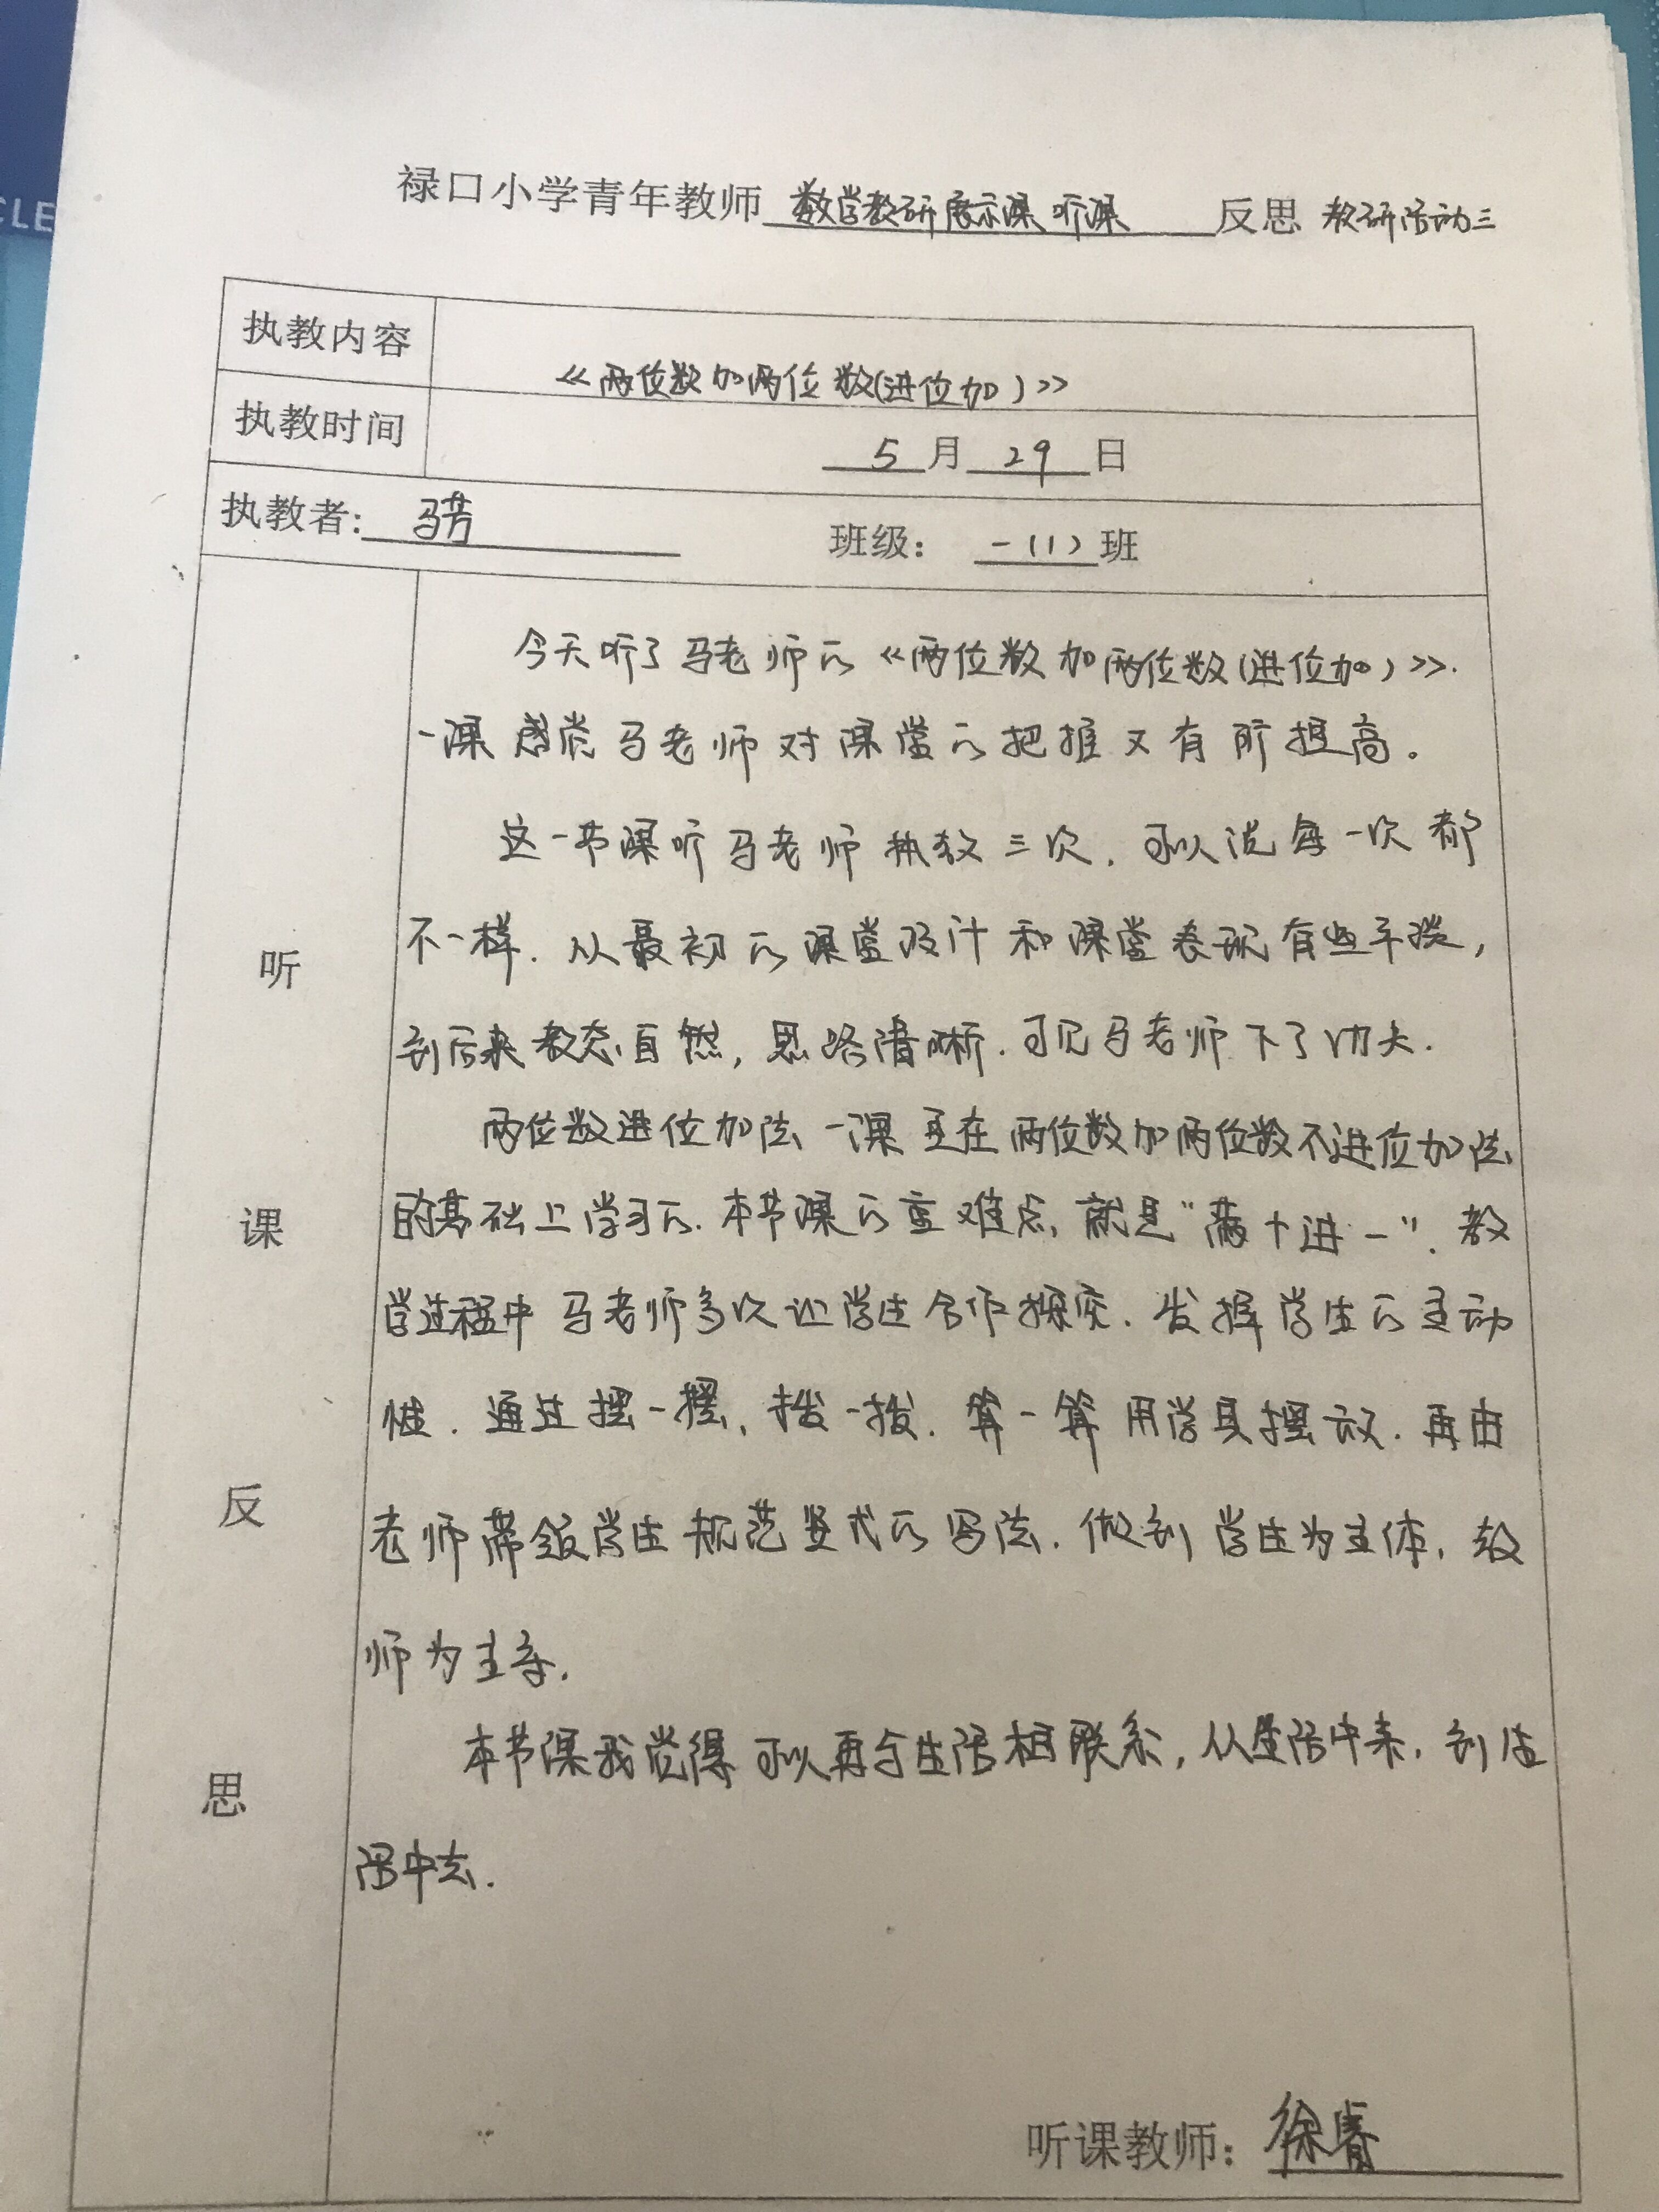 CLE
禄口小学青年教师 数学教研展示课听课 反思 教研活动三
执教内容 《两位数加两位数(进位加)》
执教时间 5月29日
执教者: 马芳 班级: 一(1)班
听课反思
今天听了马老师的《两位数加两位数(进位加)》.
一课感觉马老师对课堂的把握又有所提高。
这一节课听马老师执教三次,可以说每一次都
不一样.从最初的课堂设计和课堂表现有些平淡,
到后来教态自然,思路清晰.可见马老师下了功夫.
两位数进位加法一课是在两位数加两位数不进位加法
的基础上学习的.本节课的重难点就是"满十进一".教
学过程中马老师多次让学生合作探究.发挥学生的主动
性.通过摆一摆、拨一拨.算一算用学具摆放.再由
老师带领学生规范竖式的写法.做到学生为主体,教
师为主导.
本节课我觉得可以再与生活相联系,从生活中来,到生
活中去.
听课教师: 徐睿